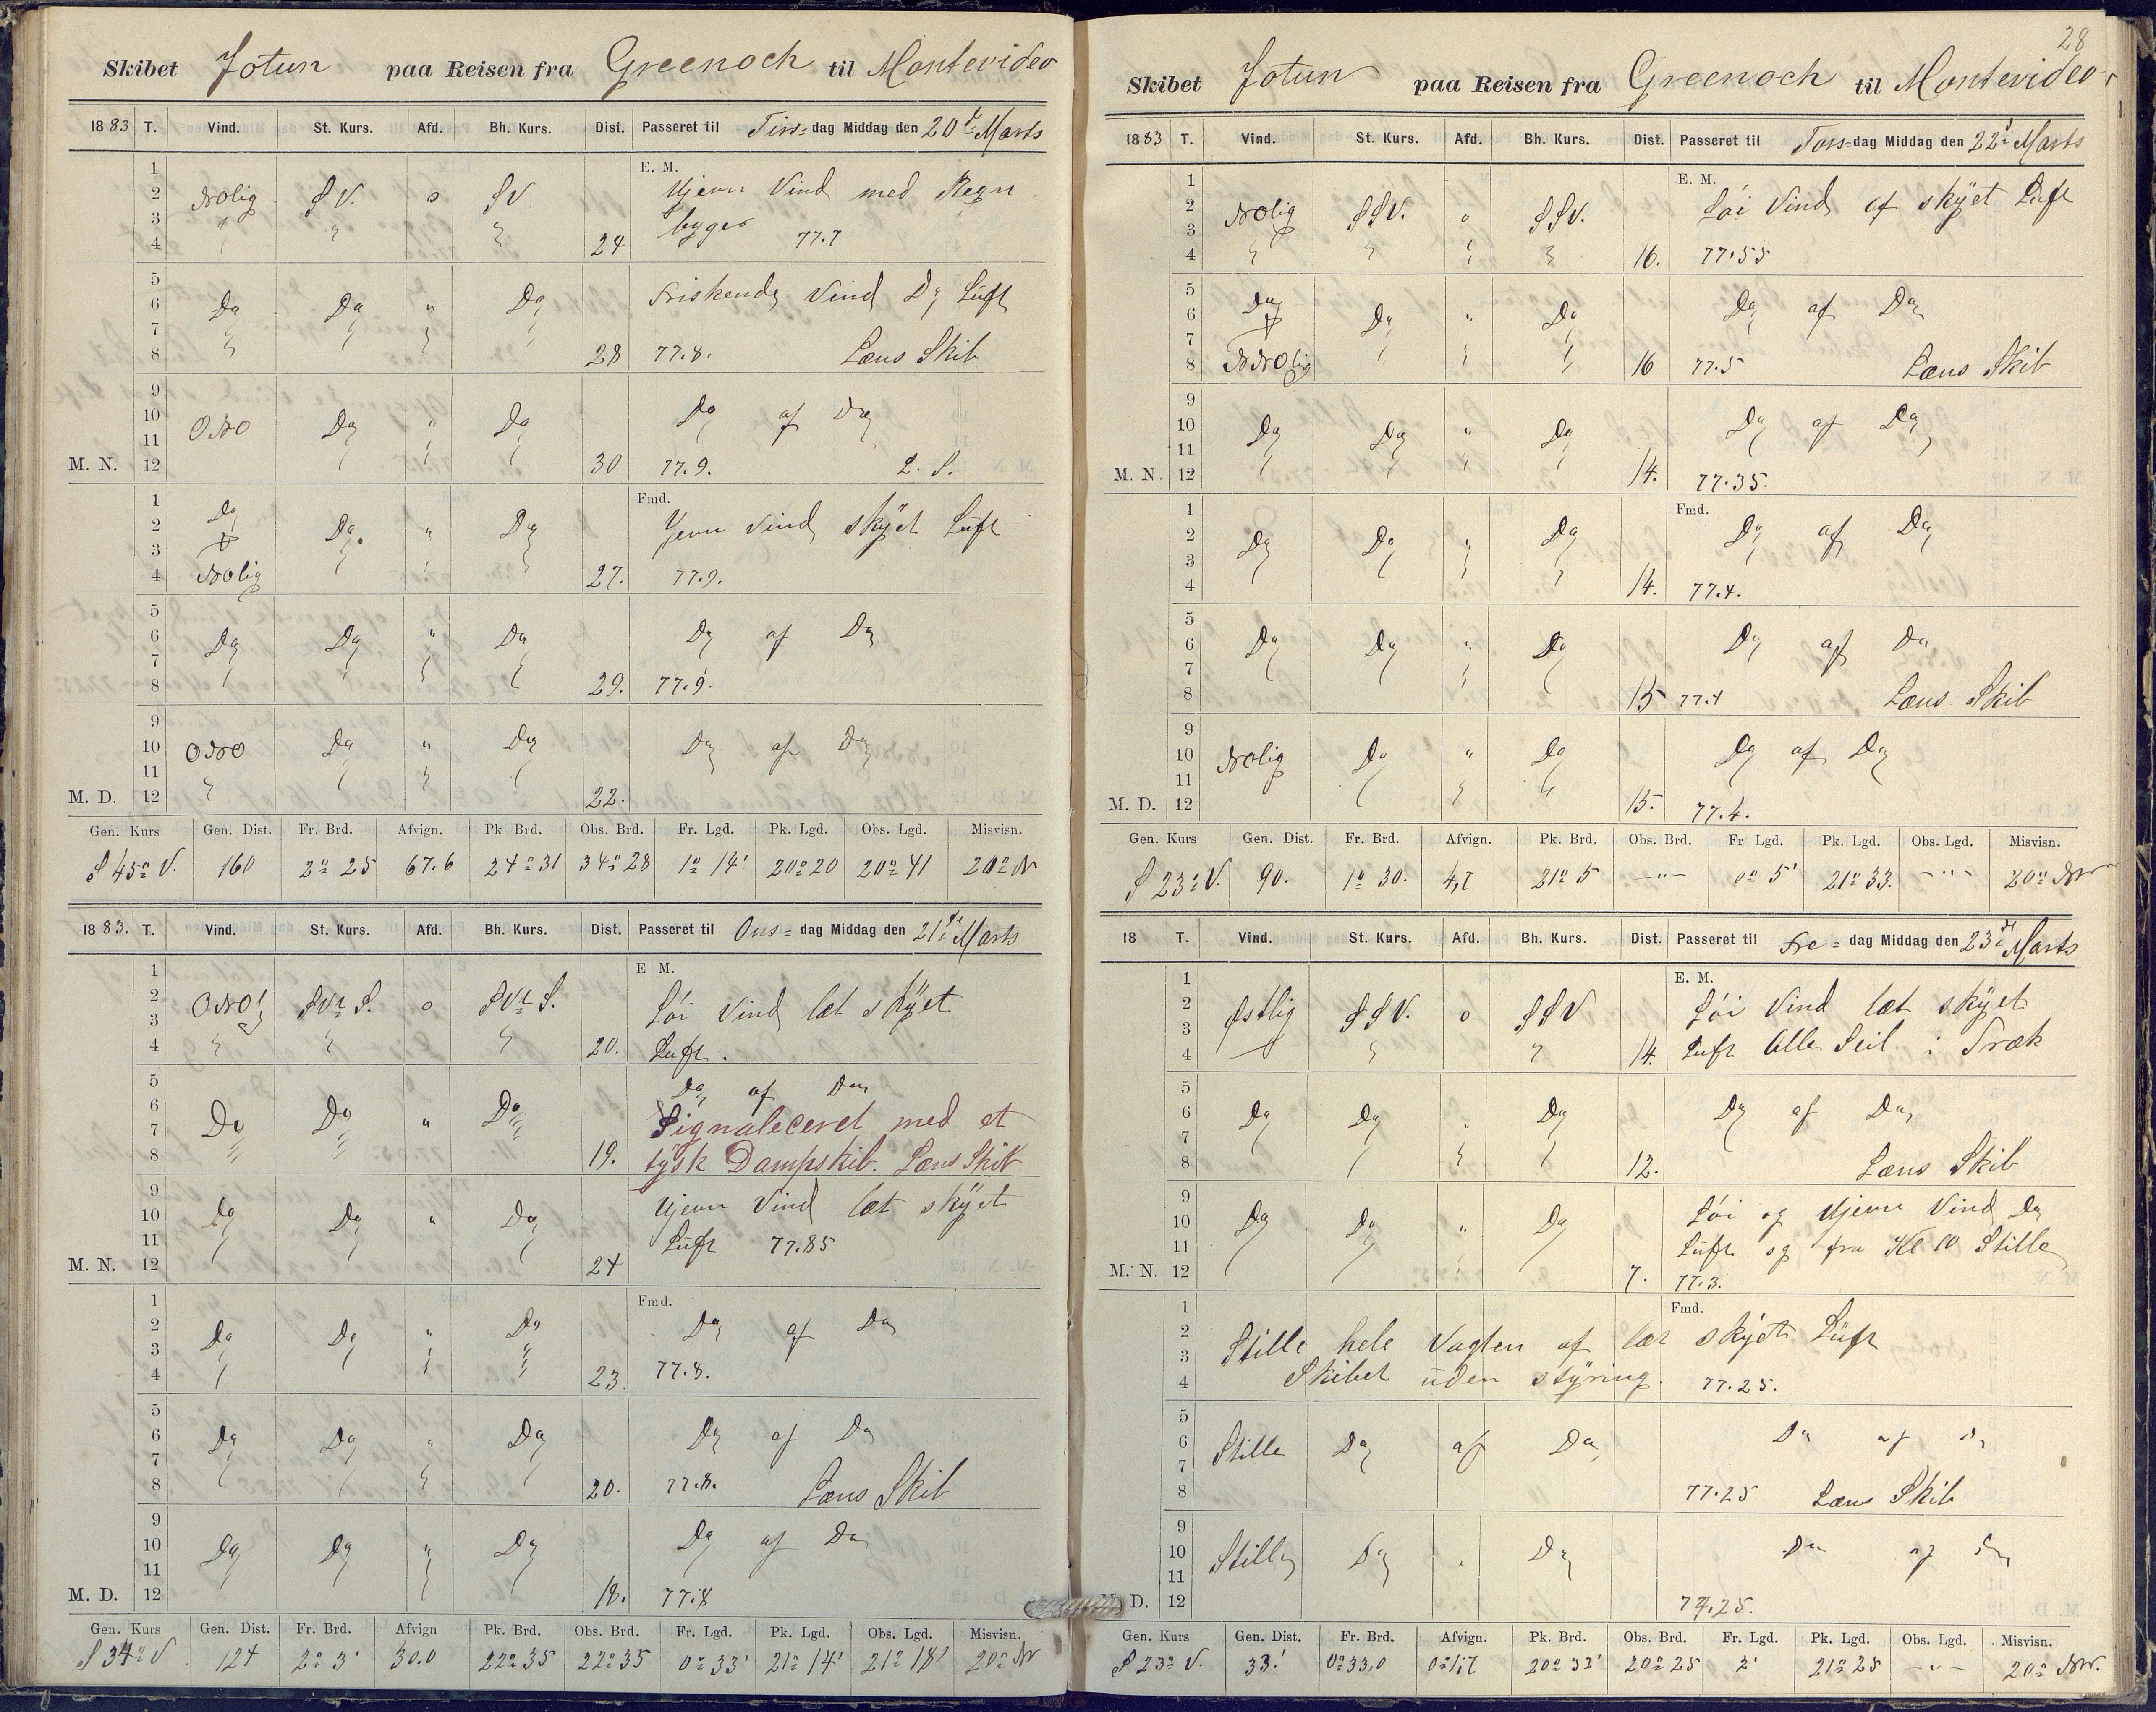 Skibet Jotun paa Reisen fra Greenock til Montevideo
1883 T. Vind. St. Kurs. Afd. Bh. Kurs. Dist. Passeret til Tirs=dag Middag den 20d Marts
E. M.
1 2 3 4 NOlig SV. o SV 24 Ujevn Vind med Regn
byger 77.7
5 6 7 8 Do Do " Do 28 Friskende Vind Do Luft
77.8. Læns Skib
9 10 11 M. N. 12 ONO Do " Do 30 Do af Do
77.9. L. S.
Fmd.
1 2 3 4 Do NOlig Do. " Do 27. Jevn Vind skÿet Luft
77.9.
5 6 7 8 Do Do " Do 29. Do af Do
77.9.
9 10 11 M. D. 12 ONO Do " Do 22. Do af Do
Gen. Kurs Gen. Dist. Fr. Brd. Afvign. Pk Brd. Obs. Brd. Fr. Lgd. Pk. Lgd. Obs. Lgd. Misvisn.
S 45° V. 160 2° 25 67.6 24° 31 34° 28 1° 14' 20° 20 20° 41 20° N
1883. T. Vind. St. Kurs. Afd. Bh. Kurs. Dist. Passeret til Ons= dag Middag den 21de Marts
E M.
1 2 3 4 ONO SVtS. o SVtS. 20. Löi Vind læt skÿet
Luft.
5 6 7 8 Do Do " Do 19. Do af Do
Signaleceret med et
tÿsk Dampskib. Læns Skib
9 10 11 M. N. 12 Do Do " Do 24 Ujevn Vind læt skÿet
Luft 77.85
Fmd.
1 2 3 4 Do Do " Do 23 Do af Do
77.8.
5 6 7 8 Do Do " Do 20. Do af Do
77.8. Læns Skib
9 10 11 M. D. 12 Do Do " Do 18. Do af Do
77.8
Gen. Kurs Gen. Dist. Fr. Brd. Afvign Pk. Brd. Obs. Brd. Fr. Lgd. Pk. Lgd. Obs. Lgd. Misvisn.
S 34° V 124 2° 3' 30.0 22° 35 22° 35 0° 33' 21° 14' 21° 18' 20° N
28
Skibet Jotun paa Reisen fra Greenock til Montevideo
1883 T. Vind. St. Kurs. Afd. Bh. Kurs. Dist. Passeret til Tors=dag Middag den 22d Marts
E. M.
1 2 3 4 NOlig SSV. o SSV. 16. Löi Vind af skÿet Luft
77.55
5 6 7 8 Do NNOlig Do " Do 16 Do af Do
77.5 Læns Skib
9 10 11 M. N. 12 Do Do " Do 14. Do af Do
77.35.
Fmd.
1 2 3 4 Do Do " Do 14. Do af Do
77.4.
5 6 7 8 Do Do " Do 15 Do af Do
77.4 Læns Skib
9 10 11 M. D. 12 NOlig Do " Do 15. Do af Do
77.4.
Gen. Kurs Gen. Dist. Fr. Brd. Afvign. Pk. Brd. Obs. Brd. Fr Lgd. Pk. Lgd. Obs. Lgd. Misvisn.
S 23° V. 90. 1° 30. 21° 5 —"— 0° 5' 21° 33. —"— 20° NW
18 T. Vind. St. Kurs. Afd. Bh. Kurs. Dist. Passeret til Fre= dag Middag den 23d Marts
E. M.
1 2 3 4 Østlig SSV. o SSV 14. Löi Vind læt skÿet
Luft Alle Seil i Træk
5 6 7 8 Do Do " Do 12. Do af Do
Læns Skib
9 10 11 M. N. 12 Do Do " Do 7. Löi og Ujevn Vind Do
Luft og fra Kl 10 Stille
77.3.
Fmd.
1 2 3 4 Stille hele Vagten af læt skÿet Luft
Skibet uden stÿring. 77.25.
5 6 7 8 Stille Do af Do Do af Do
77.25 Læns Skib
9 10 11 M. D. 12 Stille Do " Do Do af Do
77.25.
Gen. Kurs Gen. Dist. Fr. Brd. Afvign. Pk. Brd. Obs. Brd. Fr. Lgd. Pk. Lgd. Obs. Lgd. Misvisn.
S 23° V. 33' 0° 33,0 20° 32' 20° 25 2' 21° 25 —"— 20° NW.